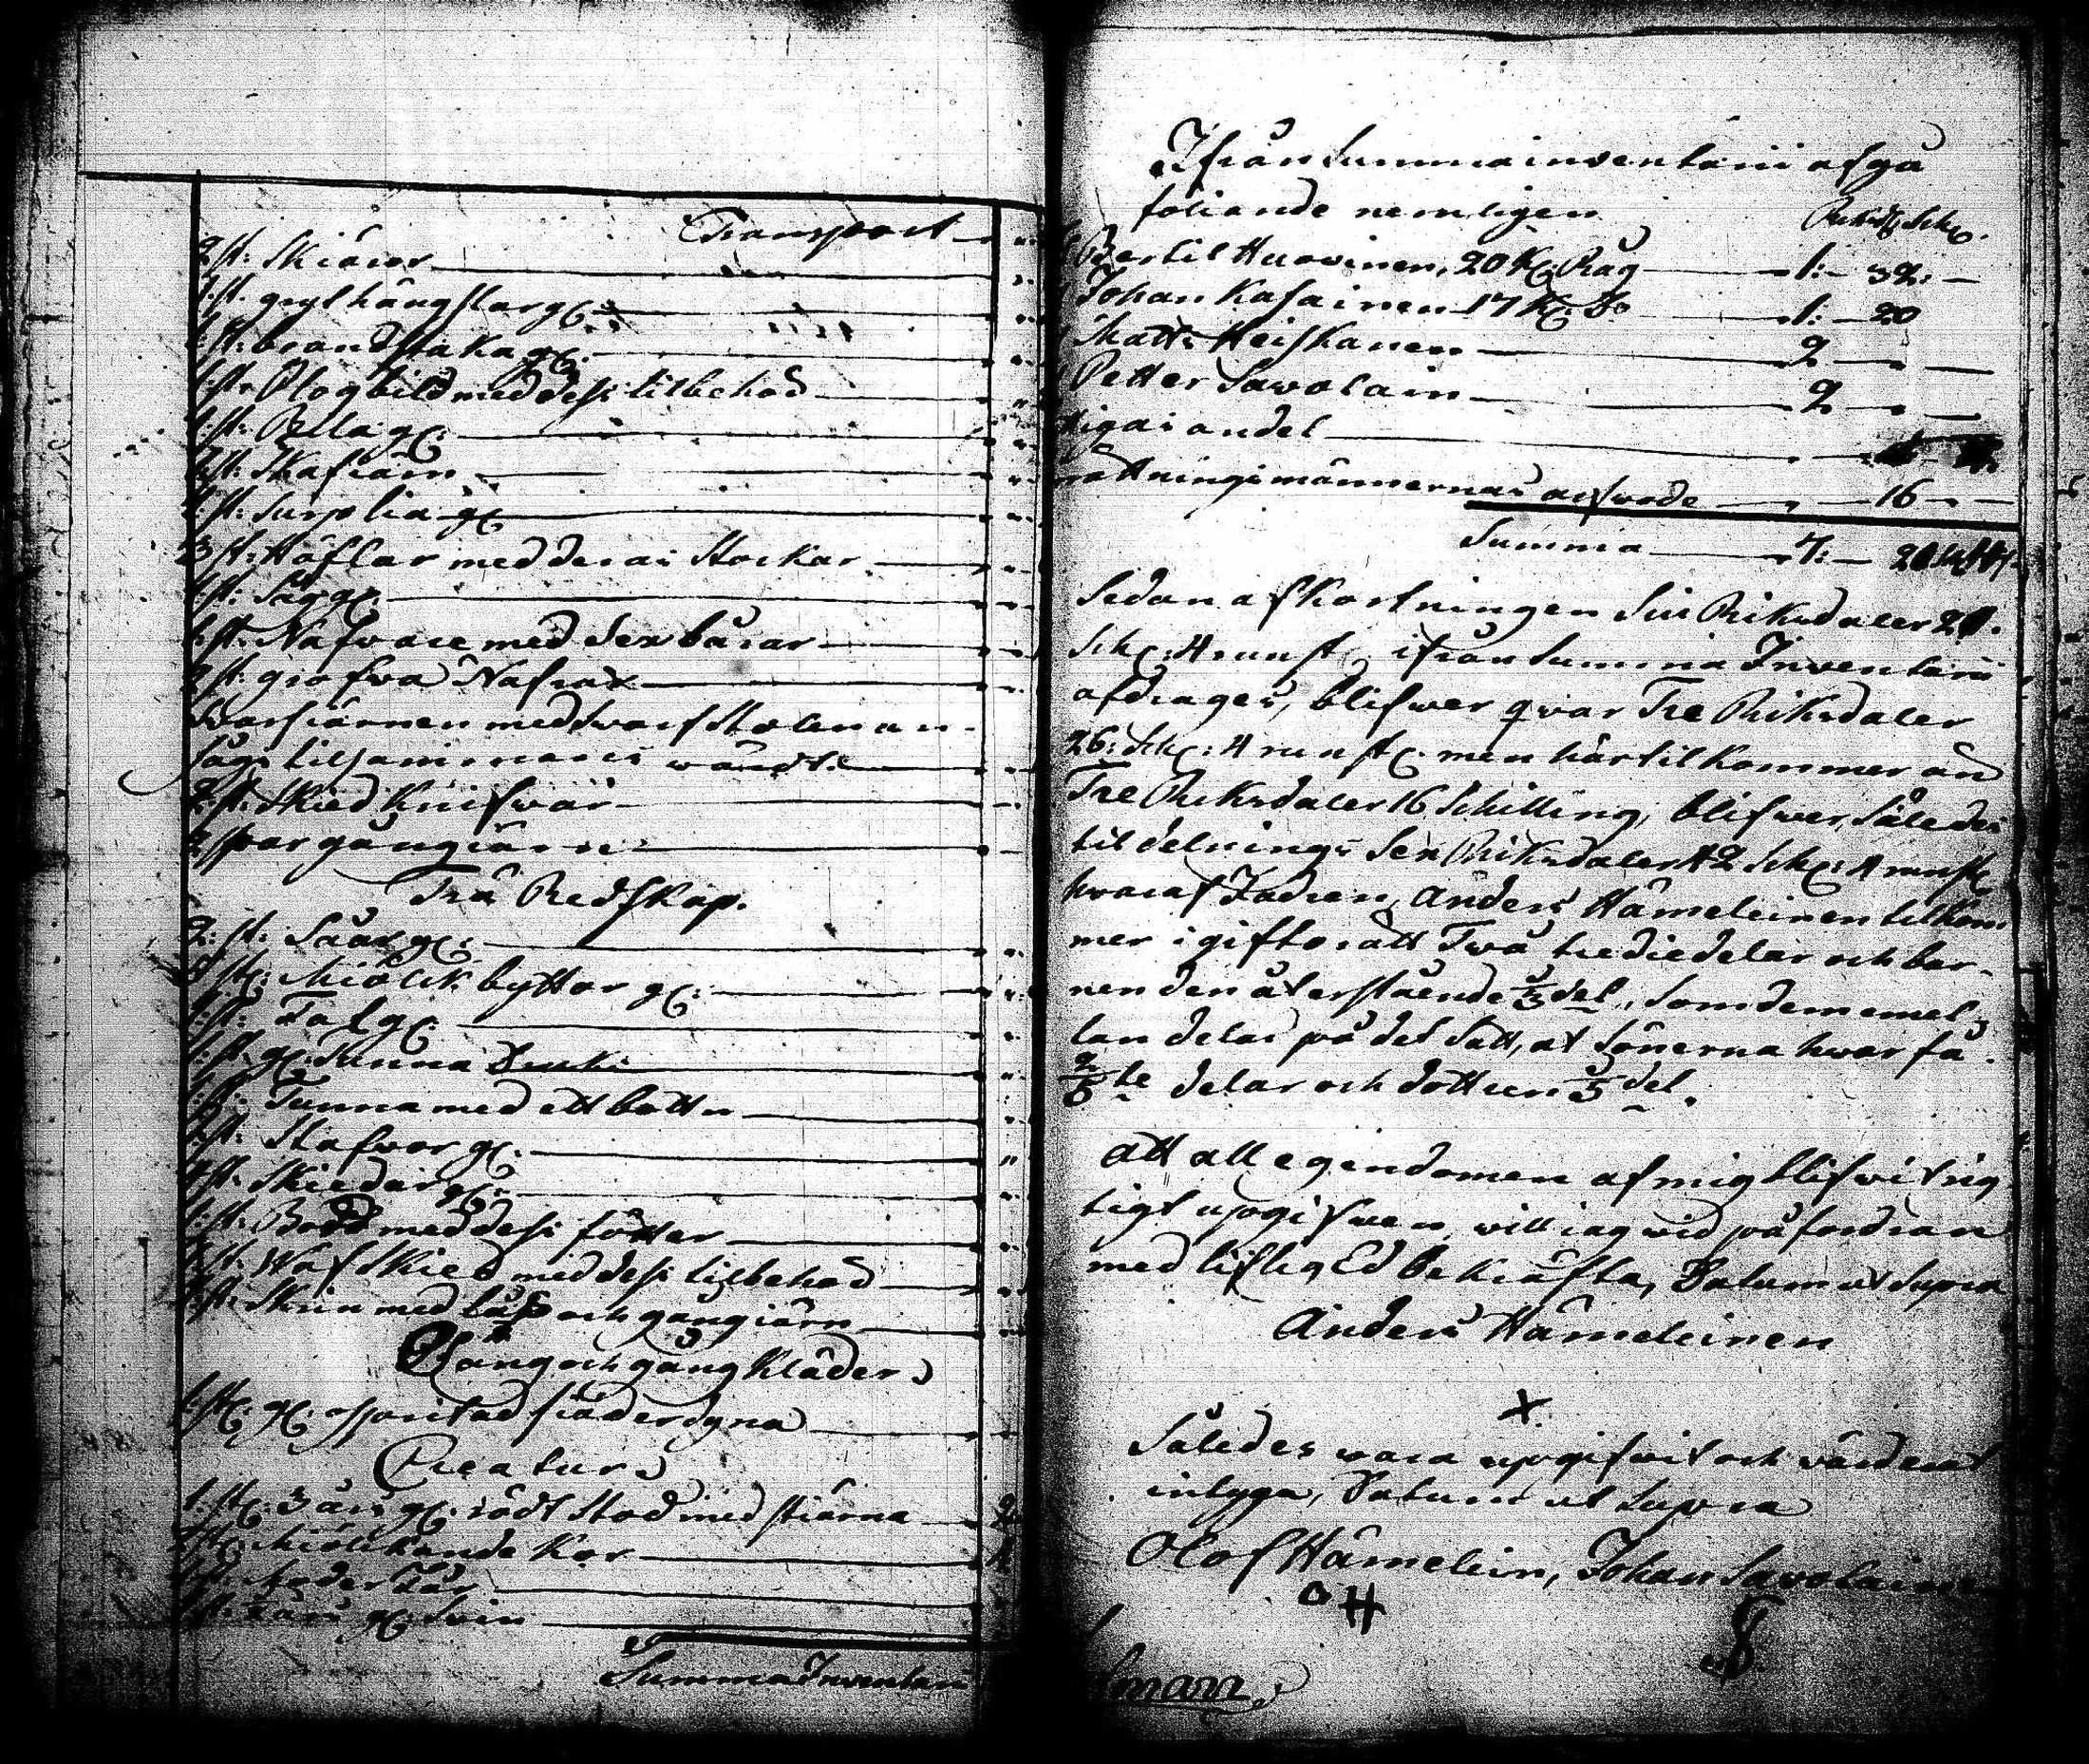 Transport
2 st: Skiäror
1 st. gryt hängslor gl:
1 st: brandstaka gl:
1 st. Plogbild med dess tilbehöd
1 st: Bila gl:
1 st: Skafiärn
1 st: lia gl
3 st: Höflar med deras Stockar
1 st: Såg gl
1 st: Nafvare med Sex bårar
2 st: grofva Nafrar
Svarfjärnen med svarfstolen an-
lags tilsammans wärdt:
2 st: Skied Knifwar
2 par gångiärn
Trä Redskap.
2: st: Såar gl:
st: Miölck byttor gl:
1 st: Fat gl:
1 st gl: Tunna
1 st: Tunna med ett battn
1 st: Stafwor gl:
st: Skiedar gl:
1 st: Bord med dess fötter
1 st. Wäfskied med dess tilbehöd
1 st: Skrin med Lås och gångiärn
Säng och gång Kläder
1 st: gl: spritad fiäder dyna
Creatur
1 st: 3 års gl: rödt Stod med stiärna
st: Miölckande Kor
st: Moder Får
st: års gl: Svin
Summa Inventari
Ifrån Summa inventarii afgå
föliande nemligen Riksd: Sch:
Bertil Huovinen, 20 K: Råg 1: 32: —
Johan Kasainen 17 K: Do 1: — 20
Matts Heiskanen 2 — —
Petter Sawolain 2 — —
tigas andel
ättningsmännernas arfwode " — 16 —
Summa 7: — 20
Sedan afkortningen Siu Riksdaler 20.
Sch: 4 runst: ifrån Summa Inventarii
afdrages, blifwer qvar Tre Riksdaler
26: Sch: 4 runst: men härtil kommer än
Tre Riksdaler 16 Schilling, blifwer således
til delnings Sex Riksdaler 42 Sch: 4 runst:
hvaraf Fadren, Anders Hämeleinen tilkom
mer i giftorätt Twå trediedelar och bar-
nen den återstående 1/3 del, som dem emel-
lan delas på det sätt, at Sönerna hwar få
2/5 te delar och dottren 1/5 del.
Att all egendomen af mig blifwit rig
tigt upgifwen, will iag wid påfordran
med liflig Ed Bekräfta, Datum ut Supra
Anders Hämeleinen
X
Således wara upgifwit och värderat
intyga, Datum ut Supra
Olof Hämelein, Johan Savolainen
OH
man